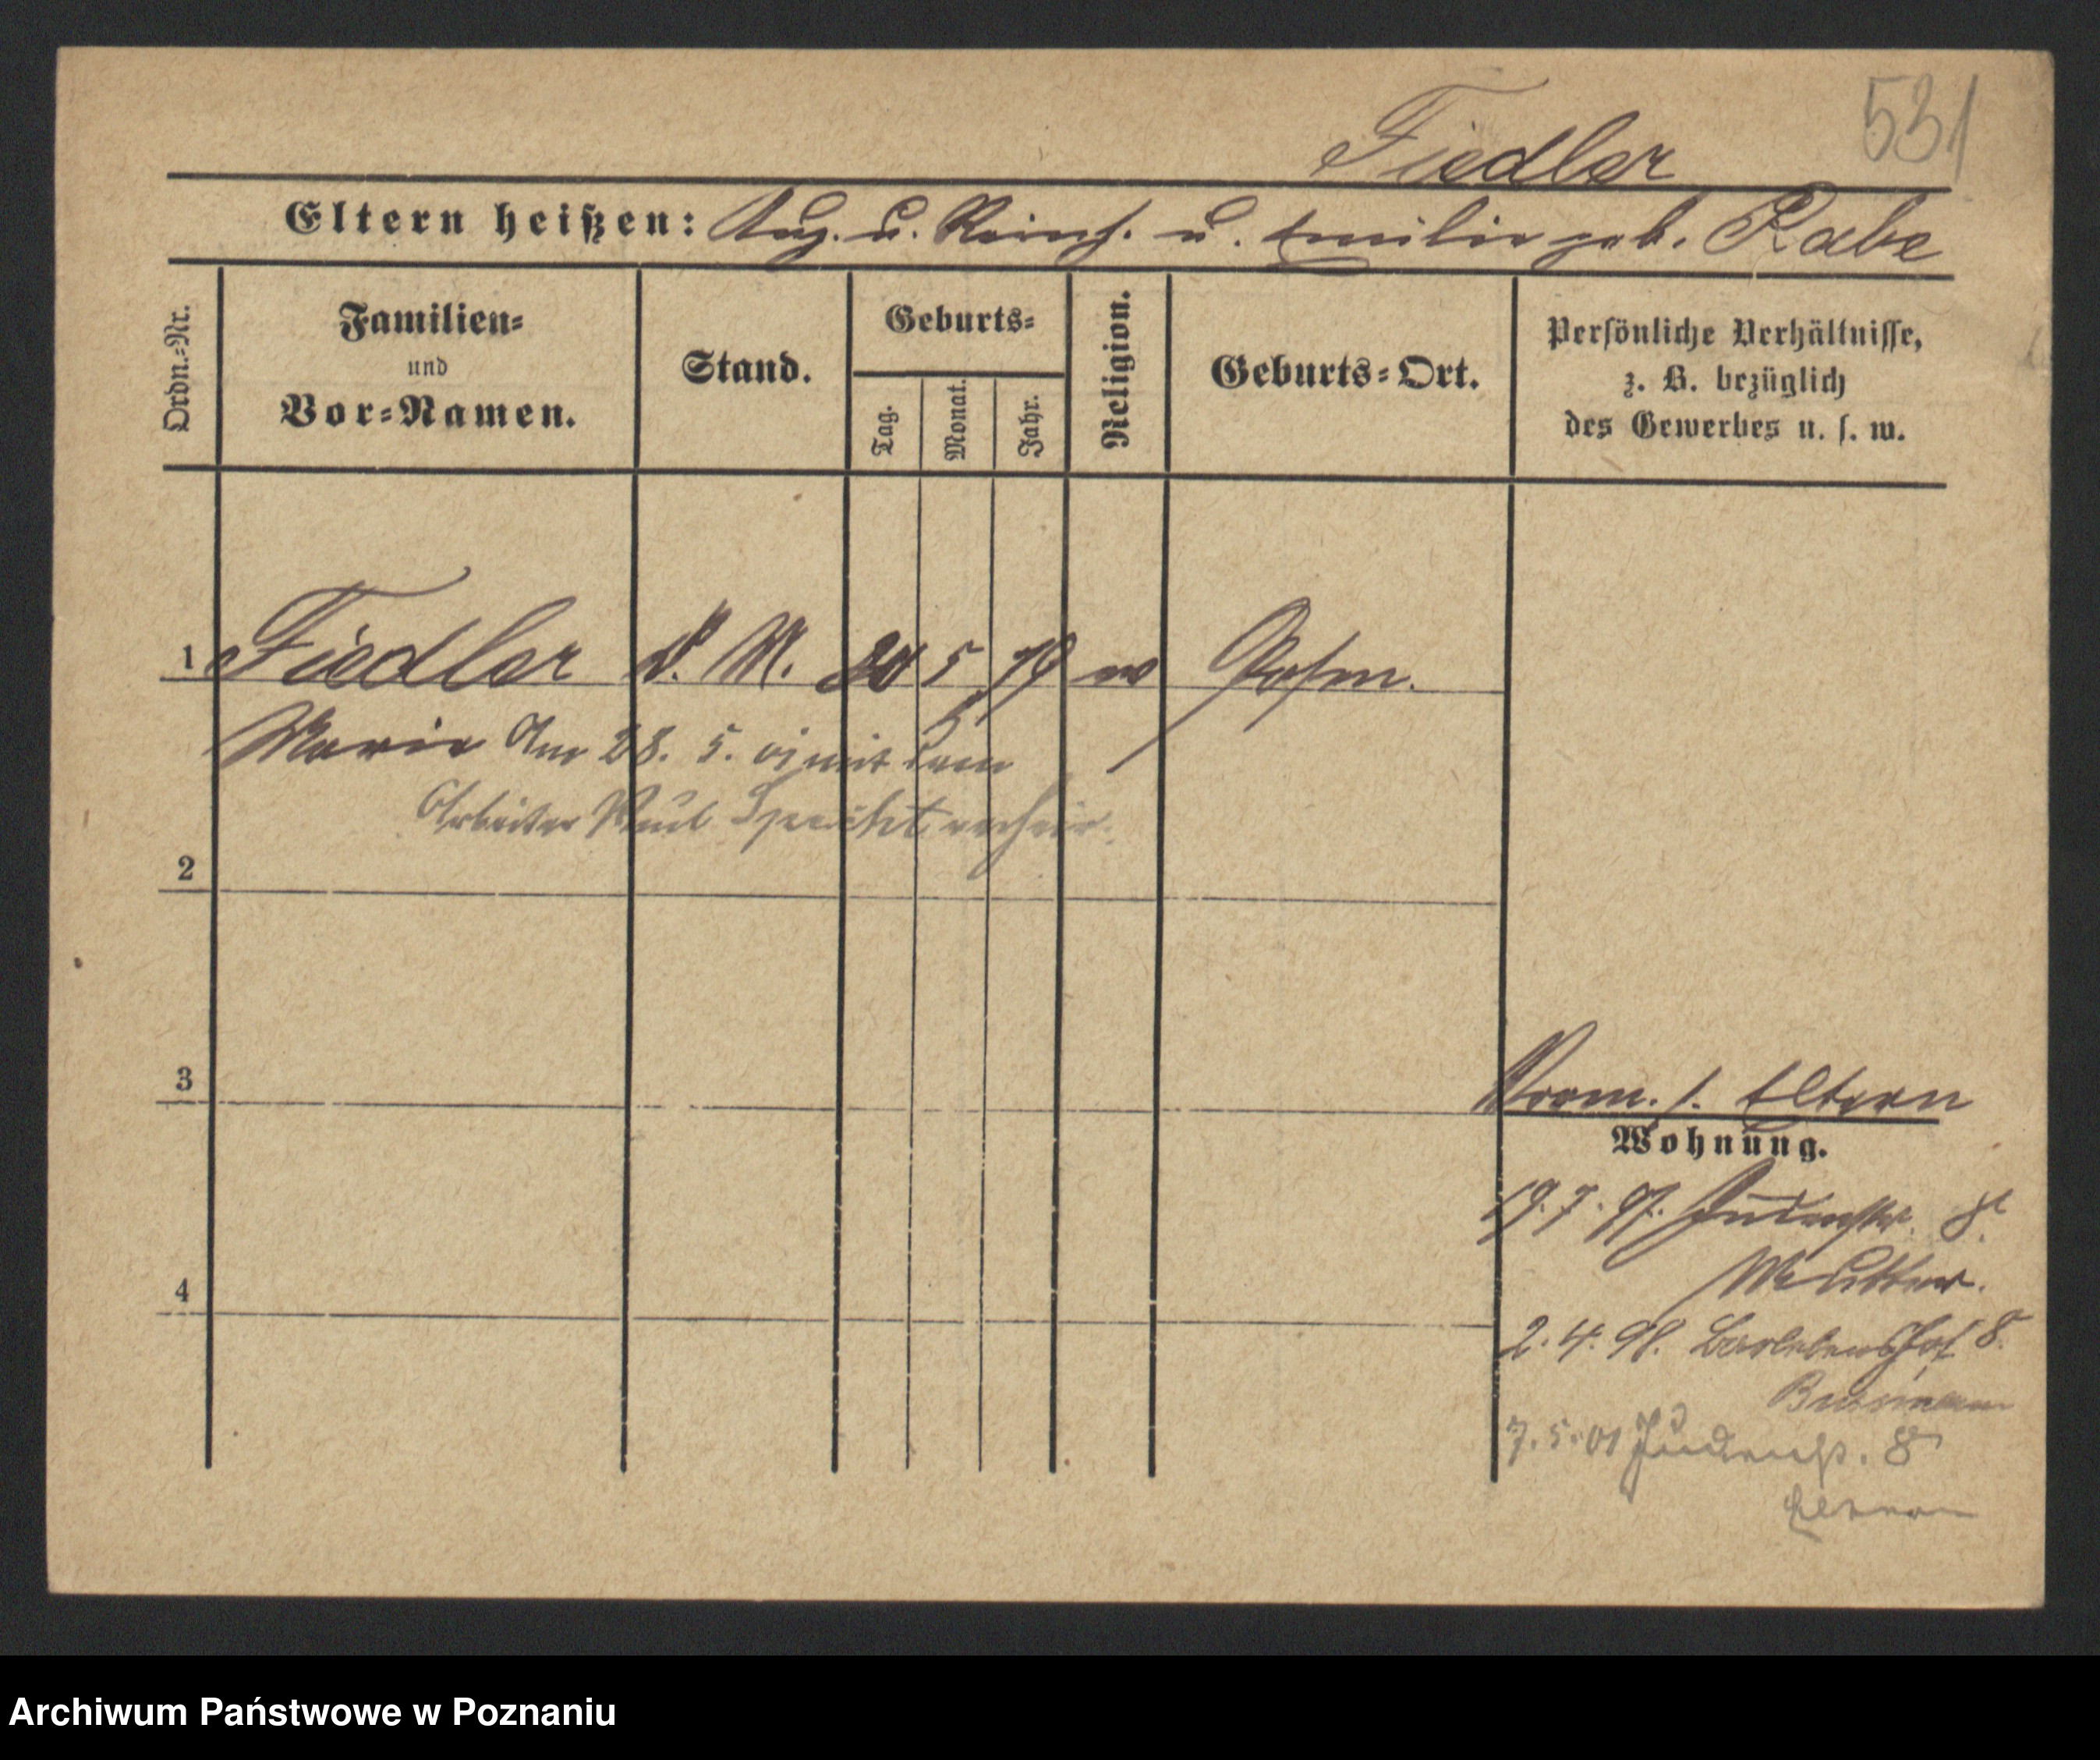 531
Fiedler
Eltern heißen: Aug. u. Reinh. u. Emilie geb. Rabe
Ordn.-Nr.
Familien-
und
Vor-Namen.
Stand.
Geburts-
Tag.
Monat.
Jahr.
Religion.
Geburts-Ort.
Persönliche Verhältnisse,
z. B. bezüglich
des Gewerbes u. s. w.
1 Fiedler D. M. 5 79 Posen.
Marie Am 28. 5. 01 mit dem
Arbeiter Paul Specht verheir.
2
3
Vorm. s. Eltern
Wohnung.
19.7.97. Judenstr. 8.
Mutter.
4
2.4.98. Barlebenshof 8.
7.5.01 Judenstr. 8
Eltern
Archiwum Państwowe w Poznaniu